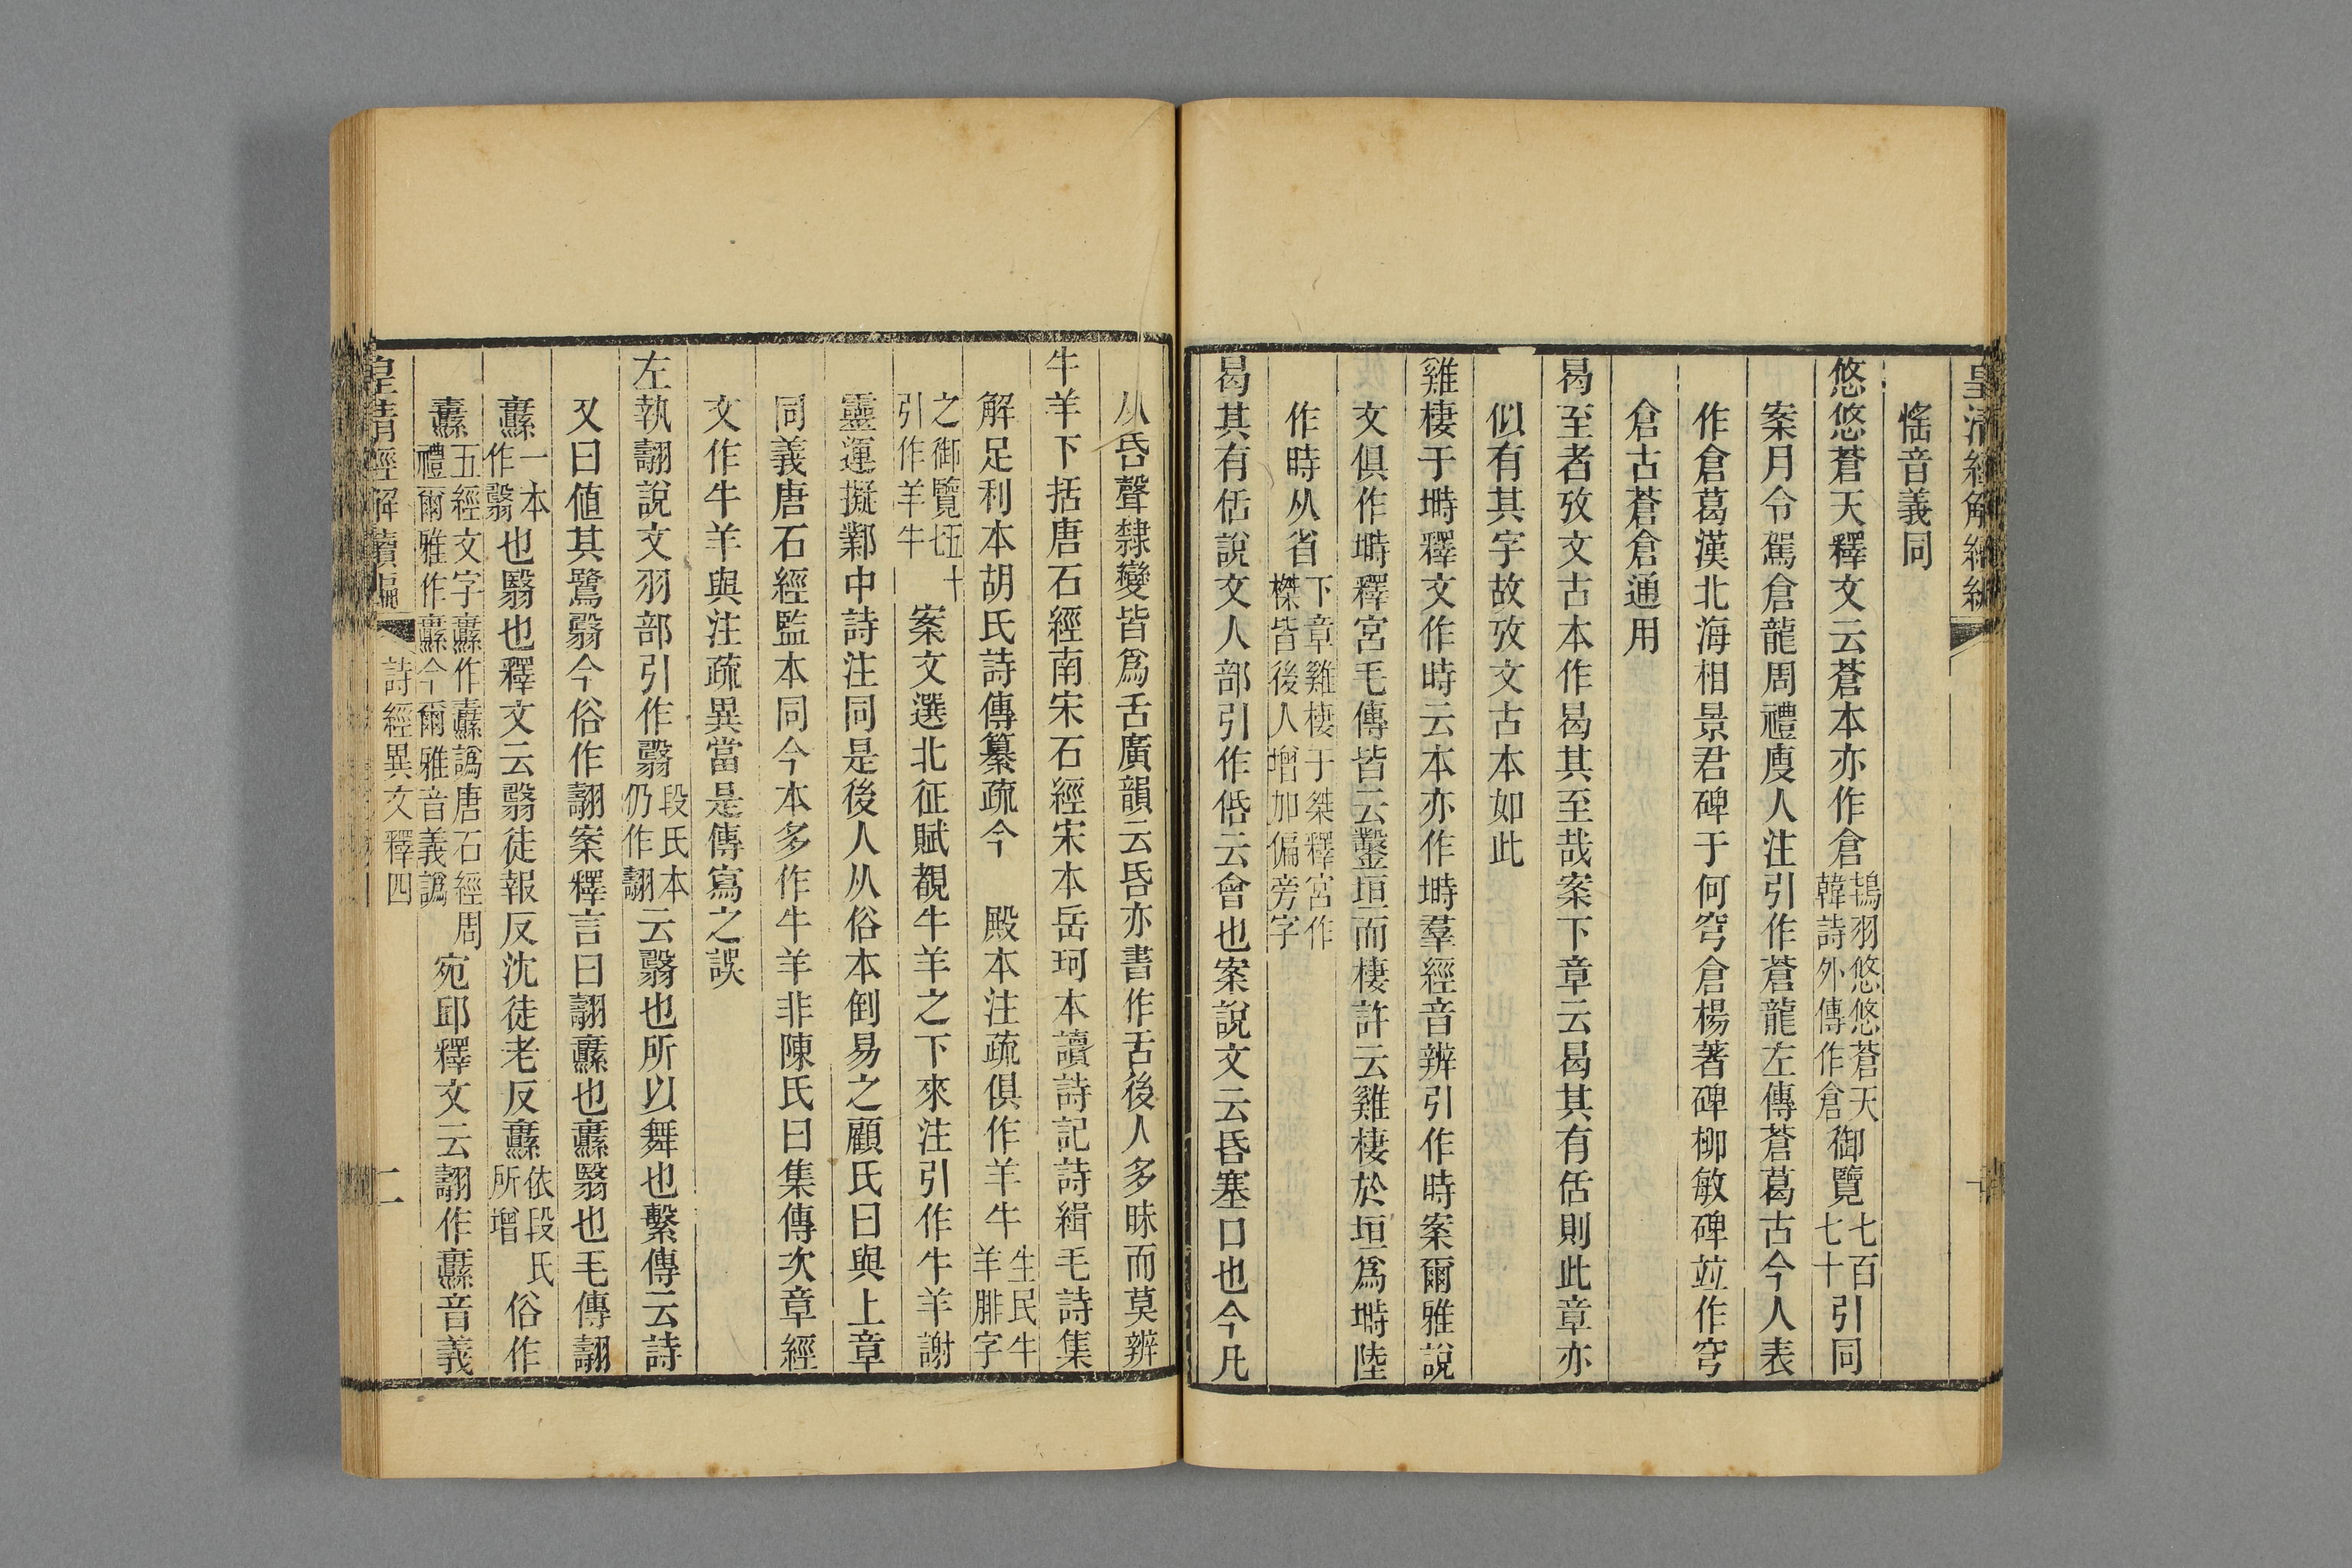 皇清經解續編
愮音義同
悠悠蒼天釋文云蒼本亦作倉鴇羽悠悠蒼天韓詩外傳作倉御覽七百七十引同
案月令駕倉龍周禮廋人注引作蒼龍左傳蒼葛古今人表
作倉葛漢北海相景君碑于何穹倉楊著碑柳敏碑竝作穹
倉古蒼倉通用
曷至者攷文古本作曷其至哉案下章云曷其有佸則此章亦
似有其字故攷文古本如此
雞棲于塒釋文作時云本亦作塒羣經音辨引作時案爾雅說
文俱作塒釋宮毛傳皆云鑿垣而棲許云雞棲於垣爲塒陸
作時从省下章雞棲于桀釋宮作榤皆後人增加偏旁字
曷其有佸說文人部引作佸云會也案說文云昏塞口也今凡
从昏聲隸變皆爲舌廣韻云昏亦書作舌後人多昧而莫辨
牛羊下括唐石經南宋石經宋本岳珂本讀詩記詩緝毛詩集
解足利本胡氏詩傳纂疏今 殿本注疏俱作羊牛生民牛羊腓字
之御覽五十七引作羊牛案文選北征賦覩牛羊之下來注引作牛羊謝
靈運擬鄴中詩注同是後人从俗本倒易之顧氏曰與上章
同義唐石經監本同今本多作牛羊非陳氏曰集傳次章經
文作牛羊與注疏異當是傳寫之誤
左執翿說文羽部引作翳段氏本仍作翿云翳也所以舞也繫傳云詩
又曰値其鷺翳今俗作翿案釋言曰翿纛也纛翳也毛傳翿
纛一本作翳也翳也釋文云翳徒報反沈徒老反纛依段氏所增俗作
纛五經文字纛作纛譌唐石經周禮爾雅作纛今爾雅音義譌宛邱釋文云翿作纛音義
皇清經解續編 詩經異文釋四 二